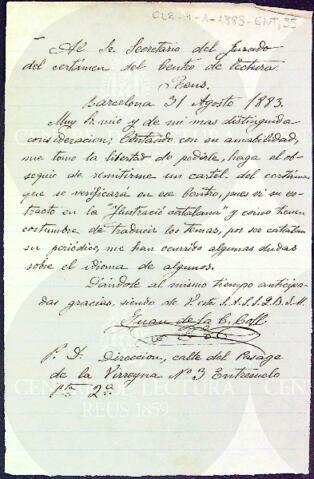 CLR-1-1-1883-ENT,35
Al Sr. Secretario del Jurado
del certámen del Centro de Lectura
Reus.
Barcelona 31 Agosto 1883.
Muy Sr. mio y de mi mas distinguida
consideracion; Contando con su amabilidad,
me tomo la libertad de pedirle, haga el ob-
sequio de remitirme un cartel del certámen
que se verificará en ese Centro, pues ví su ex-
tracto en la "Ilustració catalana" y como tienen
costumbre de traducir los temas, por ser catalan
su periódico, me han ocurrido algunas dudas
sobre el idioma de algunos.
Dándole al mismo tiempo anticipa-
das gracias, siendo de V. este S.S.S.Q.B.S.M.
Juan de la C. Coll
P. D. Direccion, calle del Pasage
de la Virreyna Nº 3 Entresuelo
Pta 2ª
CENTRE DE LECTURA
REUS 1859